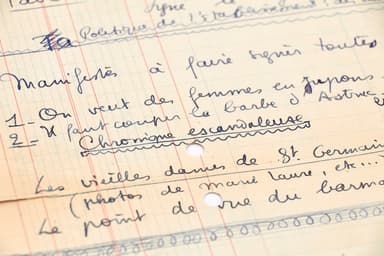 ligne
Politique de l'établissement
Manifestes à faire signer toutes
1_ On veut des femmes en jupons
2_ Il faut couper la barbe d'Astruc
Chronique escandaleuse
Les vieilles dames de St. Germain
(photos de Marie Laure, etc...
Le point de vue du barman